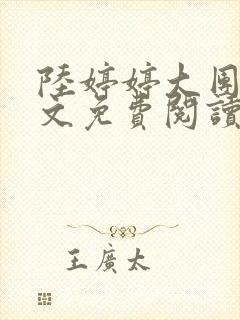 陸婷婷大圈
文免費閱讀
王廣太